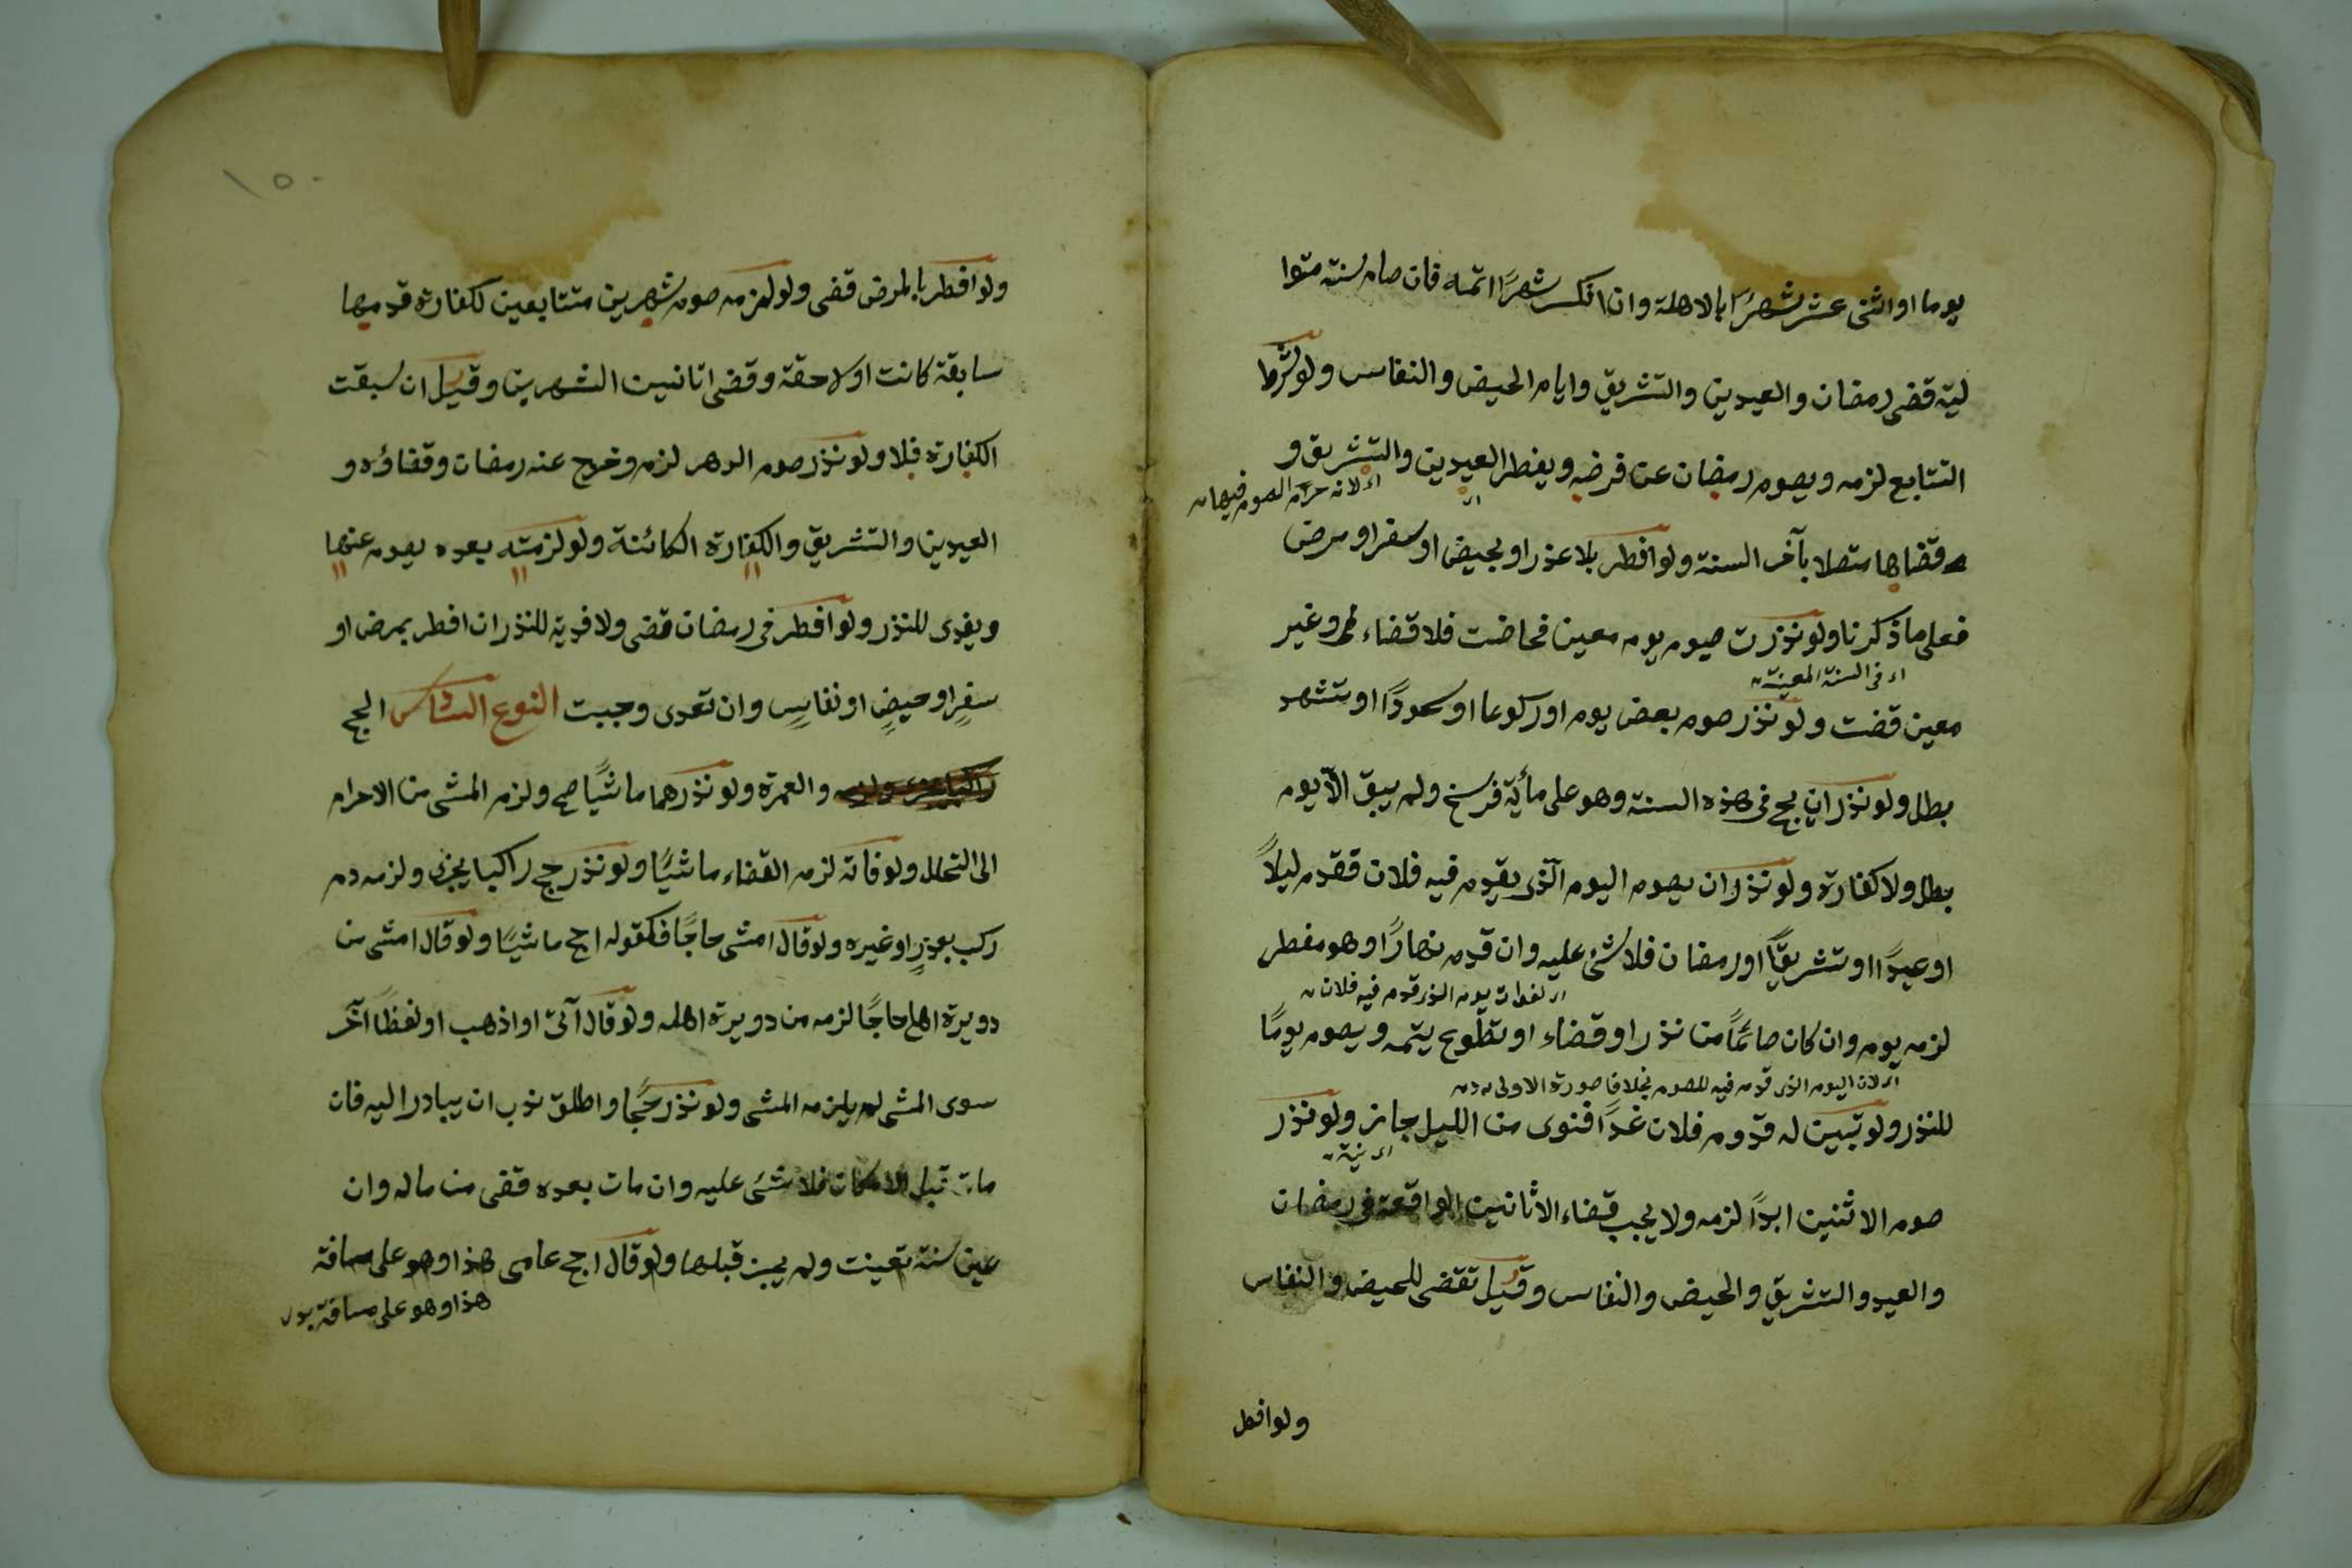 يوما او اثنى عشر شهرًا بالاهلة وان انكسر شهرًا اتمه فان صام سنة متوا
لية قضى رمضان والعيدين والتشريق وايام الحيض والنفاس ولو شرط
التتابع لزمه ويصوم رمضان عن فرضه ويفطر العيدين والتشريق و
اى لانه حرام الصوم فيها
قضاها متصلا بآخر السنة ولو افطر بلا عذر او بحيض او سفر او مرض
فعلى ما ذكرنا ولو نذرت صيوم يوم معين فحاضت فلا قضاء وغير
اى فى السنة المعينة
معين قضت ولو نذر صوم بعض يوم او ركوعا او سجودًا او تشهد
بطل ولو نذر ان يحج فى هذه السنة وهو على مأية فرسخ ولم يبق الّا يوم
بطل ولا كفارة ولو نذر ان يصوم اليوم الّذى يقدم فيه فلان فقدم ليلاً
او عيدًا او تشريقًا او رمضان فلا شئ عليه وان قدم نهارًا وهو مفطر
اى لفوات يوم الذى قدم فيه فلان
لزمه يوم وان كان صائمًا من نذر او قضاء او تطوع يتمه ويصوم يومًا
اى لان اليوم الذى قدم فيه للصوم بخلاف صورة الاولى
للنذر ولو تبين له قدوم فلان غدًا فنوى من الليل جاز ولو نذر
اى نية
صوم الاثنين ابدًا لزمه ولا يجب قضاء الاثانين الواقعة فى رمضان
والعيد والتشريق والحيض والنفاس وقيل تقضى للحيض والنفاس
ولو افطر
١٥٠
ولو افطر بالمرض قضى ولو لزمه صوم شهرين متتابعين لكفارة قدمها
سابقة كانت او لاحقة وقضى اثانين الشهرين وقيل ان سبقت
الكفارة فلا ولو نذر صوم الدهر لزم وخرج عنه رمضان وقضاؤه و
العيدين والتشريق والكفارة الكائنة ولو لزمته بعده يصوم عنها
ويفدى للنذر ولو افطر فى رمضان قضى ولا فدية للنذر ان افطر بمرض او
سفرٍ او حيضٍ او نفاسٍ وان تعدى وجبت النوع السادس الحج
والعمرة ولو نذرهما ماشيًا صح ولزم المشى من الاحرام
الى التحلل ولو فاته لزم القضاء ماشيًا ولو نذر حج راكبا يجزى ولزمه دم
ركب بعذرٍ او غيره ولو قال امشى حاجًا فكقوله احج ماشيًا ولو قال امشى من
دويرة اهلى حاجًا لزمه من دويرة اهله ولو قال آتى او اذهب او لفظًا آخر
سوى المشى لم يلزمه المشى ولو نذر حجًا واطلق ندب ان يبادر اليه فان
مات قبل الامكان فلا شئ عليه وان مات بعده قضى من ماله وان
عين سنة تعينت ولم يجز قبلها ولو قال احج عامى هذا وهو على مسافة
هذا وهو على مسافة